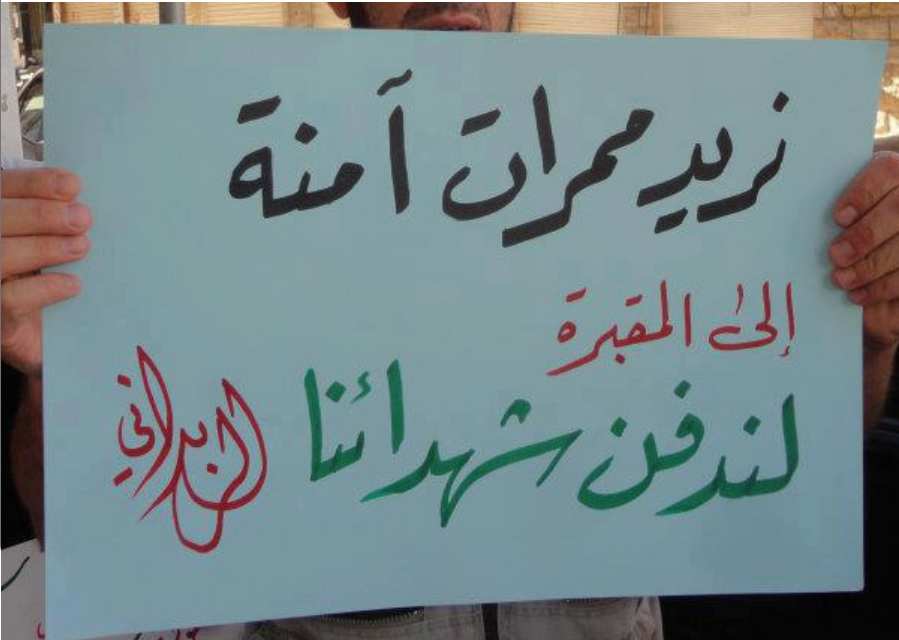 نريد ممرات آمنة
إلى المقبرة
لندفن شهدائنا
الزبداني